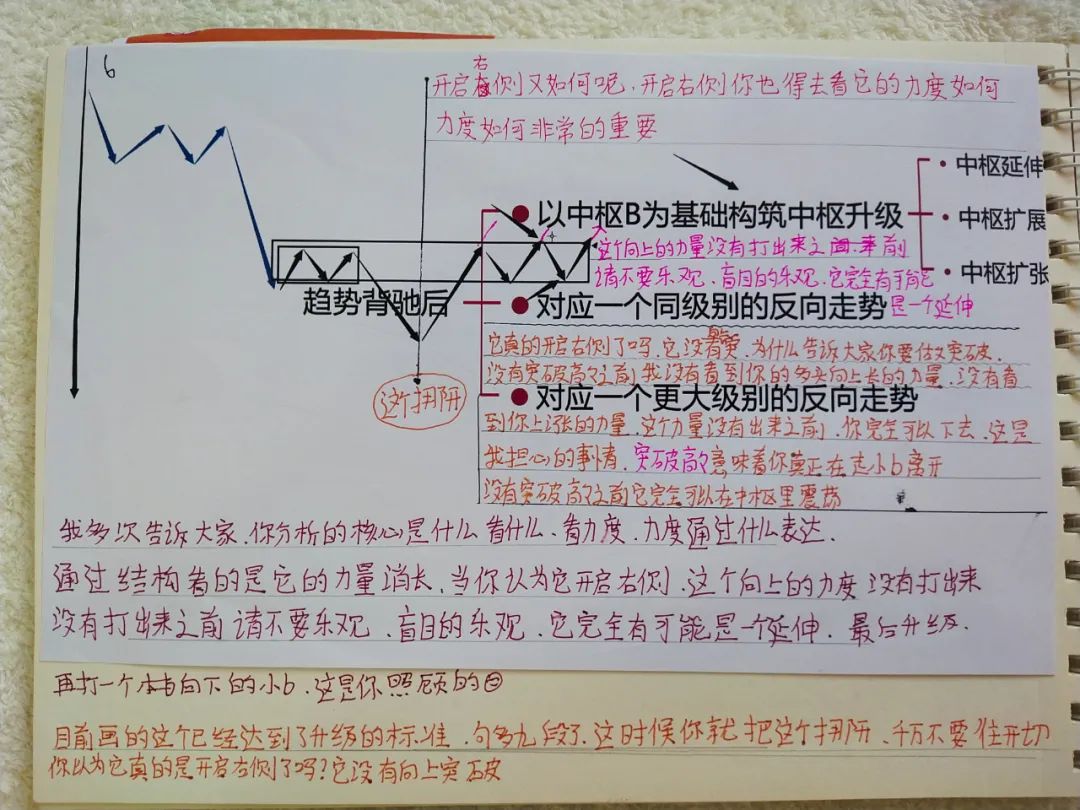 6
右
开启右侧又如何呢,开启右侧你也得去看它的力度如何
力度如何非常的重要
• 中枢延伸
● 以中枢B为基础构筑中枢升级
• 中枢扩展
这个向上的力量没有打出来之间.来前
• 中枢扩张
请不要乐观、盲目的乐观.它完全有可能
趋势背驰后
● 对应一个同级别的反向走势
是一个延伸
它真的开启右侧了吗.它没有,为什么告诉大家你要做次突破.
没有突破高点之前,我没有看到你的多头向上长的力量.没有看
● 对应一个更大级别的反向走势
这个拐阱
到你上涨的力量.这个力量没有出来之前,你完全可以下去.这是
我担心的事情.突破高点意味着你真正在走小b离开
没有突破高点之前它完全可以在中枢里震荡
我多次告诉大家.你分析的核心是什么看什么、看力度.力度通过什么表达.
通过结构看的是它的力量消长.当你以为它开启右侧.这个向上的力度没有打出来
没有打出来之前请不要乐观、盲目的乐观.它完全有可能是一个延伸.最后升级.
再打一个本书向下的小b.这是你照顾的
目前画的这个已经达到了升级的标准.句多九段了.这时候你就把这个拐阱、千万不要住开切
你以为它真的是开启右侧了吗?它没有向上突破